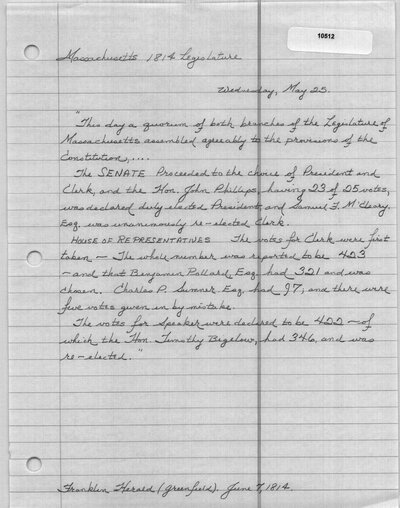 10512
Massachusetts 1814 Legislature
Wednesday, May 25.
"This day a quorum of both branches of the Legislature of
Massachusetts assembled agreeably to the provisions of the
Constitution,....
The SENATE Proceeded to the choice of President and
Clerk, and the Hon. John Phillips, having 23 of 25 votes,
was declared duly elected President, and Samuel F. McCleary,
Esq. was unanimously re-elected Clerk.
HOUSE OF REPRESENTATIVES The votes for Clerk were first
taken — The whole number was reported to be 423
-and that Benjamin Pollard, Esq. had 321 and was
chosen. Charles P. Sumner Esq. had 97; and there were
five votes given in by mistake.
The votes for Speaker were declared to be 422 - of
which the Hon. Timothy Bigelow, had 346, and was
re-elected."
Franklin Herald (Greenfield). June 7, 1814.